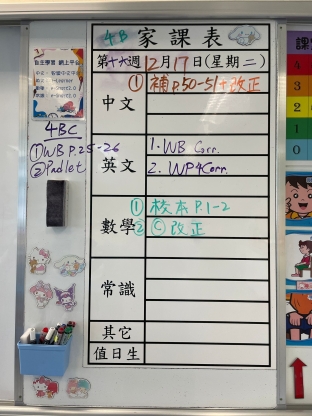 4B 家課表
第十六週 12月17日(星期二)
中文
① 補p.50-51+改正
4BC
① WB p.25-26
② Padlet
英文
1. WB Corr.
2. WP4Corr.
數學
① 校本 P.1-2
② Ⓒ 改正
常識
其它
值日生
自主學習 網上平台
4
3
2
1